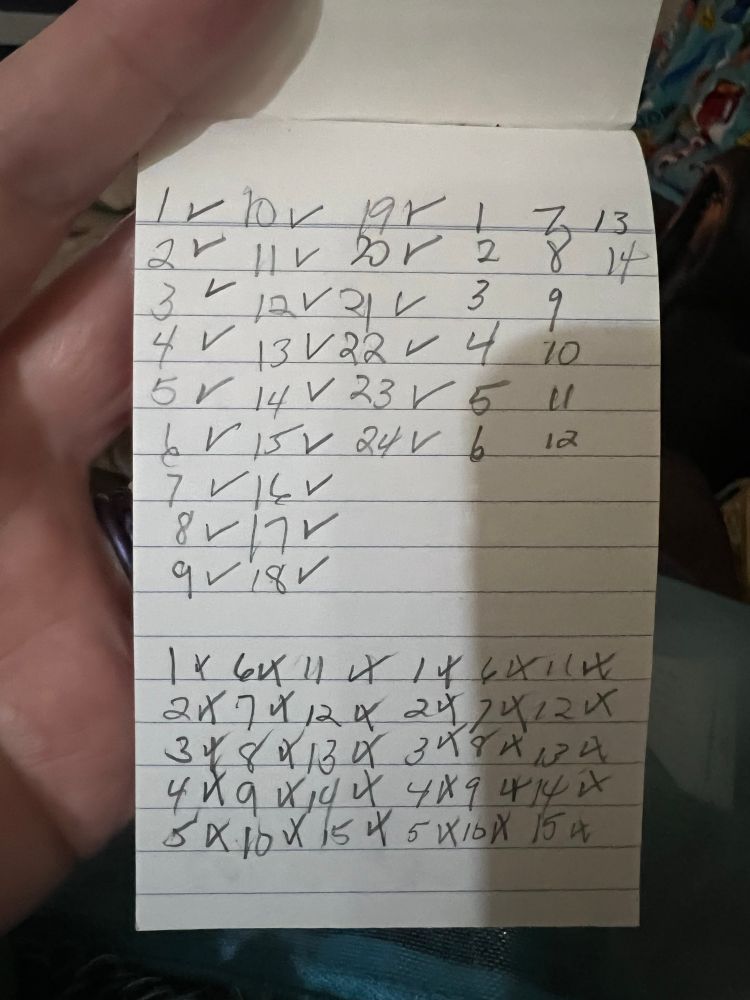 1 ✓ 10 ✓ 19 ✓ 1 7 13
2 ✓ 11 ✓ 20 ✓ 2 8 14
3 ✓ 12 ✓ 21 ✓ 3 9
4 ✓ 13 ✓ 22 ✓ 4 10
5 ✓ 14 ✓ 23 ✓ 5 11
6 ✓ 15 ✓ 24 ✓ 6 12
7 ✓ 16 ✓
8 ✓ 17 ✓
9 ✓ 18 ✓
1 x 6 x 11 x 1 x 6 x 11 x
2 x 7 x 12 x 2 x 7 x 12 x
3 x 8 x 13 x 3 x 8 x 13 x
4 x 9 x 14 x 4 x 9 x 14 x
5 x 10 x 15 x 5 x 10 x 15 x